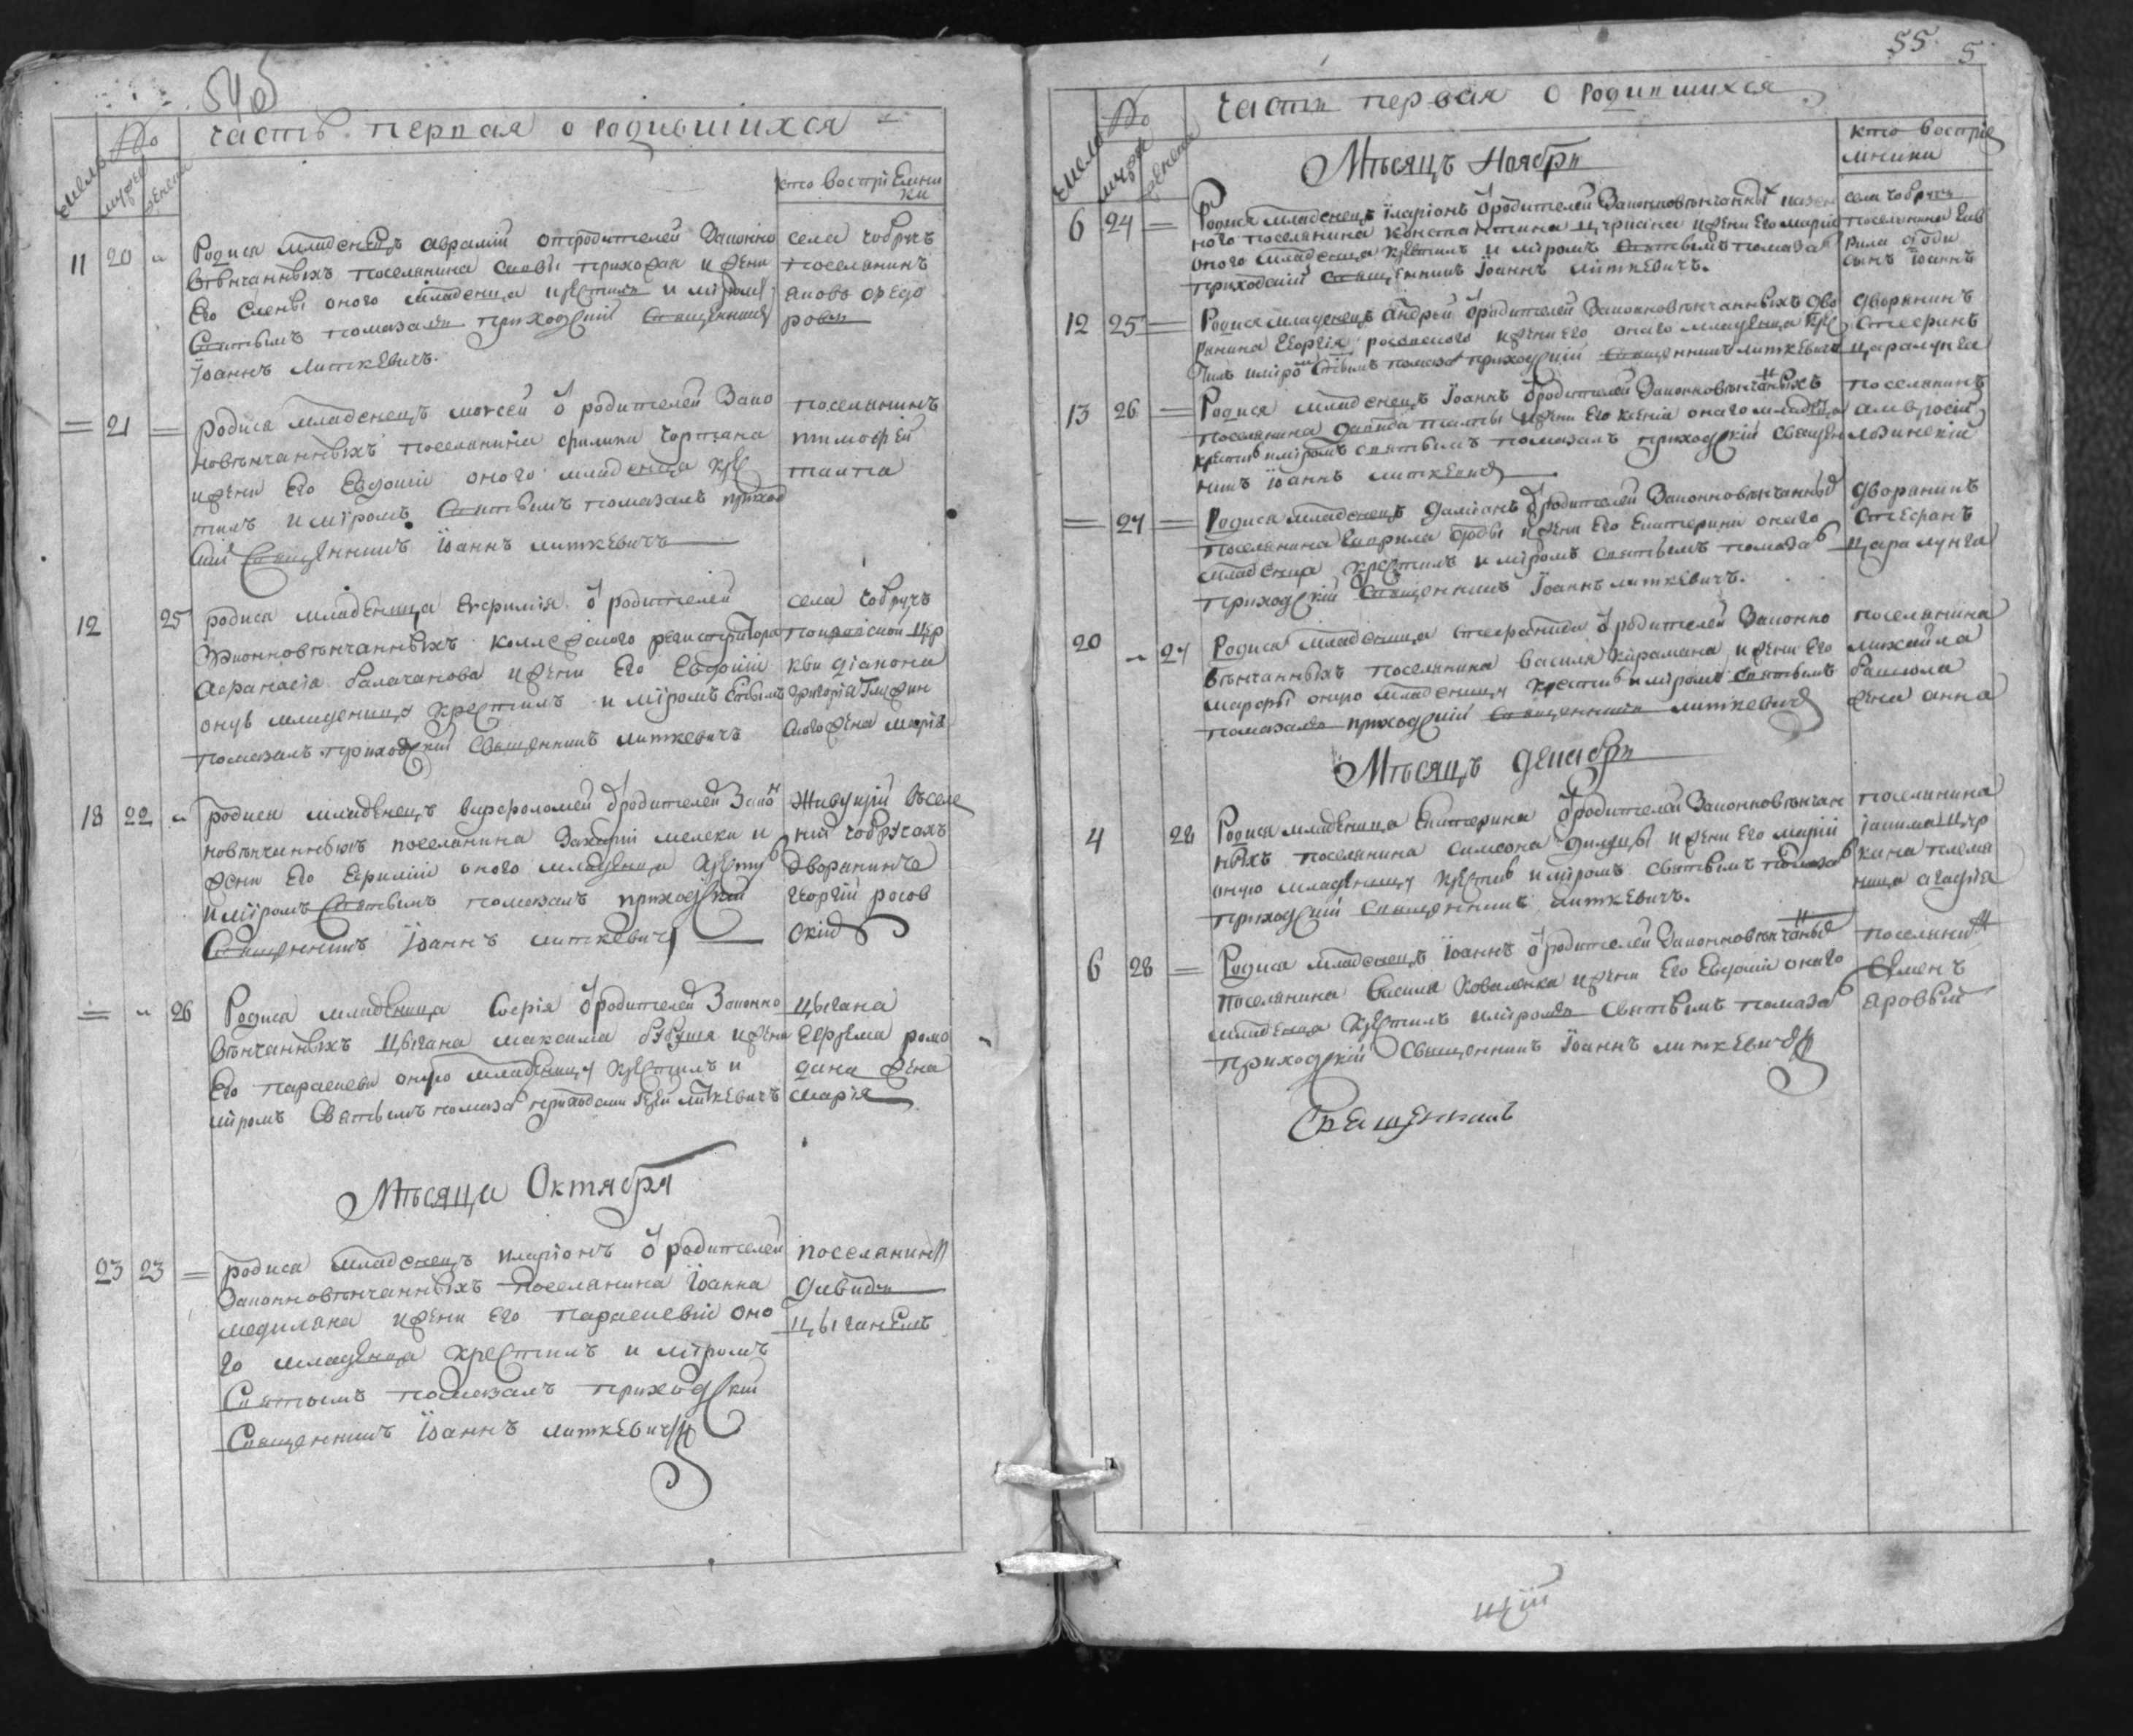 54об
часть первая о родившихся
число No мужск женска
кто воспріемни
ки
11 20 „ Родися младенецъ аврамій отродителей законно
вѣнчанныхъ поселянина приходан и жени
его елены оного младенца крестилъ и мѵромъ
Святымъ помазалъ приходскій Священникъ
Іоаннъ литкевичъ.
села чобручъ
поселянинъ
яковъ федо
ровъ
= 21 = родися младенецъ моѵсей ѿ родителей зако
новѣнчанныхъ поселянина филипа чортана
ижени его евдокіи оного младенца крес
тилъ имѵромъ Святымъ помазалъ приход
скій Священникъ Іоаннъ литкевичъ
поселянинъ
тимофей
талпа
12 25 родися младеница евфимія ѿ родителей
законновѣнчанныхъ коллежского регистратора
афанасія балачанова ижени его евдокіи
онув младеницу крестилъ и мѵромъ Стымъ
помазалъ приходскій священникъ литкевичъ
села чобручъ
покровской цер
кви діакона
григорія
жена марія
18 22 „ родися младенецъ варфоломей ѿродителей зако
новѣнчанныхъ поселянина захарія мелеки и
жени его ефиміи оного младенца крести
имѵромъ Святымъ помазалъ приходскій
Священникъ Іоаннъ литкевичъ
живущій въселе
ній чобручахъ
дворянинъ
георгій росов
скій
= „ 26 Родися младеница Софія ѿродителей законно
вѣнчанныхъ цыгана максима ижени
его параскеви оную младеницу крестилъ и
мѵромъ Святымъ помаза приходскій іерей литкевичъ
цыгана
ефрема рома
дина жена
марія
Мѣсяца Октября
23 23 = родися младенецъ иларіонъ ѿ родителей
законновѣнчанныхъ поселянина Іоанна
медиляна ижени его параскевіи оно
го младенца крестилъ и мѵромъ
Святымъ помазалъ приходскій
Священникъ Іоаннъ литкевичъ
поселянинъ
давидъ
цыганемъ
55 5
часть первая о родившихся
число No мужск женска
кто воспріе
мники
Мѣсяцъ Ноября
6 24 = Родися младенецъ іларіонъ ѿродителей законновѣнчанных казен
ного поселянина константина ижени его маріи
оного младенца крестилъ и мѵромъ Святымъ помаза
приходскій Священникъ Іоаннъ литкевичъ.
села чобручъ
поселянина гав
рила
сынъ Іоаннъ
12 25 = Родися младенецъ андрей ѿродителей законновѣнчанныхъ дво
рянина георгія росовского ижени его оного младенца крес
тилъ имѵро Стымъ помаза приходскій Священникъ литкевичъ
дворянинъ
стефанъ
царалунга
13 26 = Родися младенецъ Іоаннъ ѿродителей законновѣнчанныхъ
поселянина давида талпы ижени его ксеніи оного младенца
крестив имѵромъ святымъ помазалъ приходскій священ
никъ Іоаннъ литкевичъ
поселянинъ
амвросій
лозинскій
= 27 = Родися младенецъ даміанъ ѿродителей законновѣнчанных
поселянина гаврила ижени его екатерини оного
младенца крестилъ и мѵромъ святымъ помаза
приходскій Священникъ Іоаннъ литкевичъ.
дворянинъ
стефанъ
царалунга
20 „ 27 Родися младеница стефанида ѿродителей законно
вѣнчанныхъ поселянина василя карамана ижени его
оную младеницу крестив имѵромъ святымъ
помазалъ приходскій Священникъ литкевичъ
поселянина
михайла
жена анна
Мѣсяцъ декабря
4 28 Родися младеница екатерина ѿродителей законновѣнчан
ныхъ поселянина симеона ижени его маріи
оную младеницу крестив имѵромъ святымъ помаза
приходскій Священникъ литкевичъ.
поселянина
іакима
племя
ница агафія
6 28 = Родися младенецъ Іоаннъ ѿродителей законновѣнчаных
поселянина василя коваленка ижени его евдокіи оного
младенца крестилъ имѵромъ святымъ помаза
приходскій Священникъ Іоаннъ литкевичъ
поселянин
семенъ
яровый
Священникъ
щій